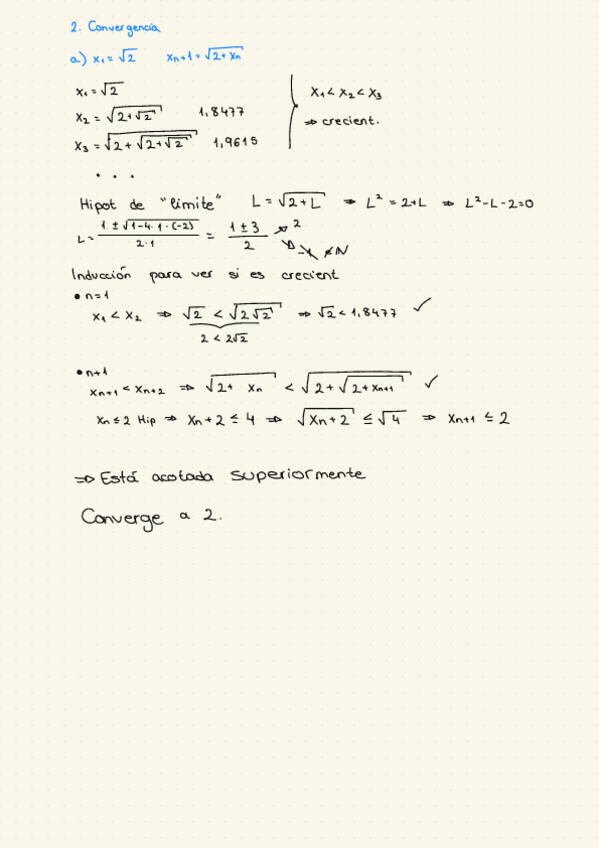 2. Convergencia
a) x₁ = √2 xₙ+1 = √(2+xₙ)
x₁ = √2
x₂ = √(2+√2) 1,8477
x₃ = √(2+√(2+√2)) 1,9615
x₁ < x₂ < x₃
⇒ crecient.
...
Hipot de "límite" L = √(2+L) ⇒ L² = 2+L ⇒ L²-L-2=0
L = (1 ± √(1-4·1·(-2)))/(2·1) = (1±3)/2 2 -1 ∉ ℕ
Inducción para ver si es crecient
• n=1
x₁ < x₂ ⇒ √2 < √(2√2) ⇒ √2 < 1,8477 ✓
2 < 2√2
• n+1
xₙ₊₁ < xₙ₊₂ ⇒ √(2+ xₙ) < √(2+√(2+xₙ₊₁)) ✓
xₙ ≤ 2 Hip ⇒ xₙ+2 ≤ 4 ⇒ √(xₙ+2) ≤ √4 ⇒ xₙ₊₁ ≤ 2
⇒ Está acotada superiormente
Converge a 2.